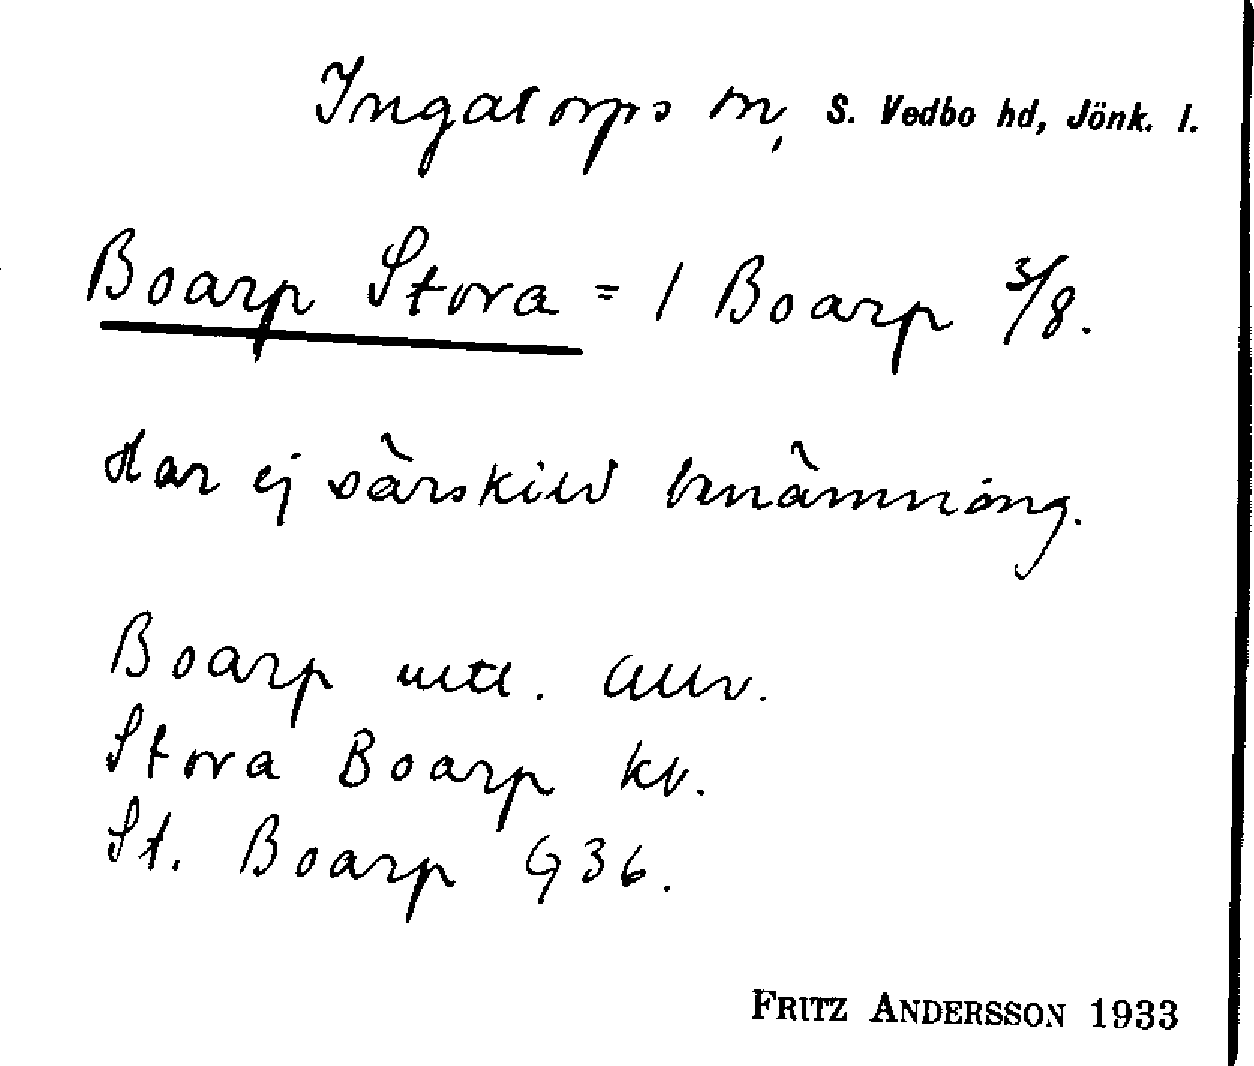 Ingatorps sn, S. Vedbo hd, Jönk. l.
Boarp Stora = 1 Boarp 3/8.
Har ej särskild benämning.
Boarp mtl. allm.
Stora Boarp kb.
St. Boarp G 36.
FRITZ ANDERSSON 1933